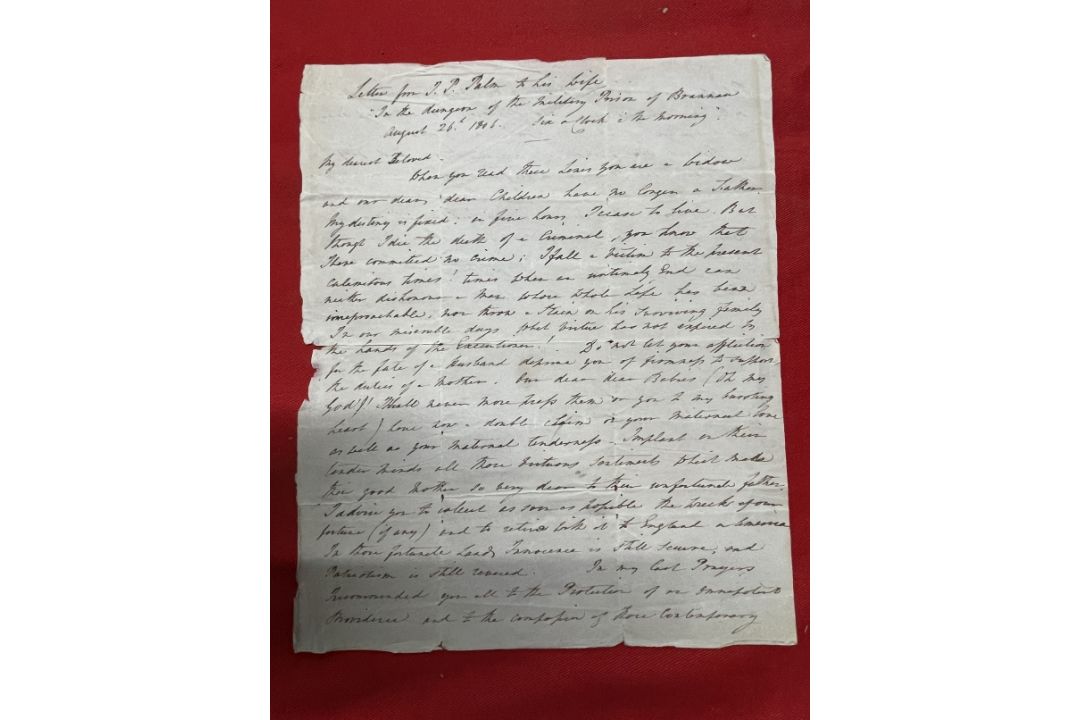 Letter from J. P. Palm to his Wife
"In the dungeon of the Military Prison of Braunau
August 26th 1806. Six o Clock i the morning".
My dearest Beloved.
When you read these Lines you are a Widow
and our dear, dear Children have no longer a Father.
My destiny is fixed; in five hours I cease to live. But
though I die the death of a Criminal, you know that
I have committed no crime; I fall a Victim to the present
Calamitous times! times when an untimely End can
neither dishonour a Man whose whole Life has been
irreproachable, nor throw a Stain on his Surviving family
In our miserable days what Virtue has not expired by
the hands of the Executioner! Do not let your affliction
for the fate of a Husband deprive you of firmness to support
the duties of a Mother. Our dear dear Babies (Oh my
God!)! I shall never more press them or you to my bursting
heart) have now a double Claim on your maternal love
as well as your maternal tenderness. Implant on their
tender minds all those Virtuous Sentiments which make
their good Mother so very dear to their unfortunate father.
I advise you to collect as soon as possible the wreck of your
fortune (if any) and to retire with it to England or America
In those fortunate Lands Innocence is still Secure, and
Patriotism is still revered. In my last Prayers
I recommended you all to the Protection of an Omnipotent
Providence and to the compassion of those Contemporary